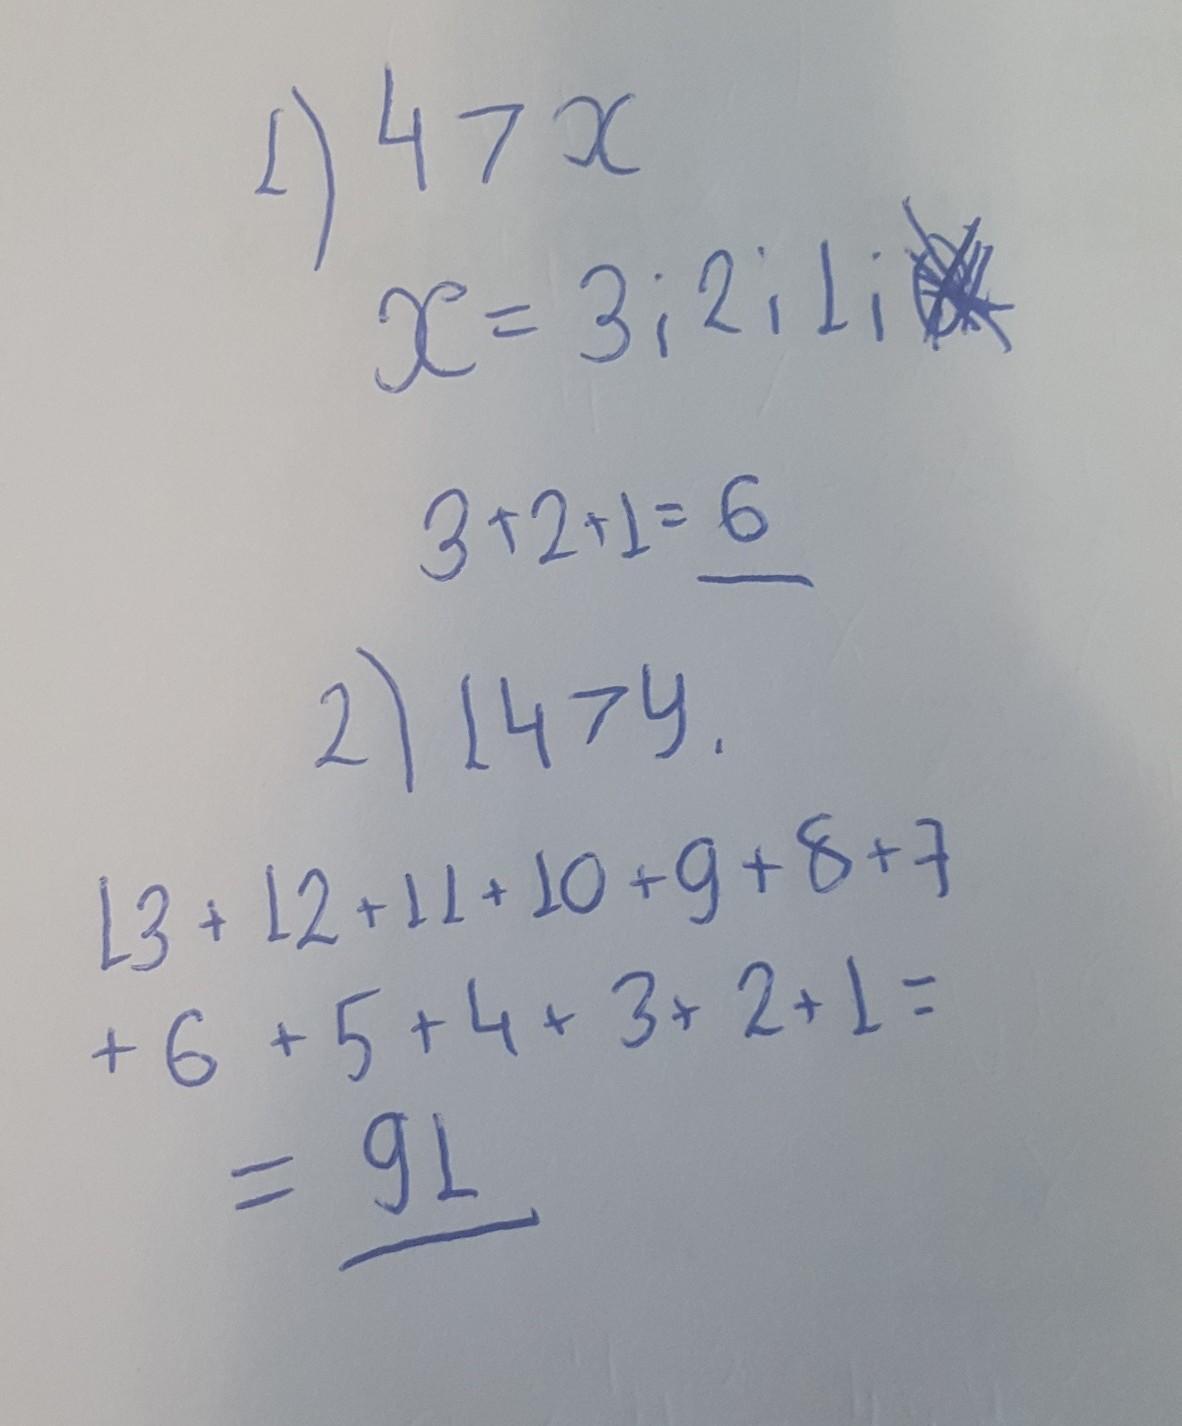 1) 4 > x
x = 3; 2; 1;
3+2+1= 6
2) 14 > y.
13 + 12 + 11 + 10 + 9 + 8 + 7
+ 6 + 5 + 4 + 3 + 2 + 1 =
= 91